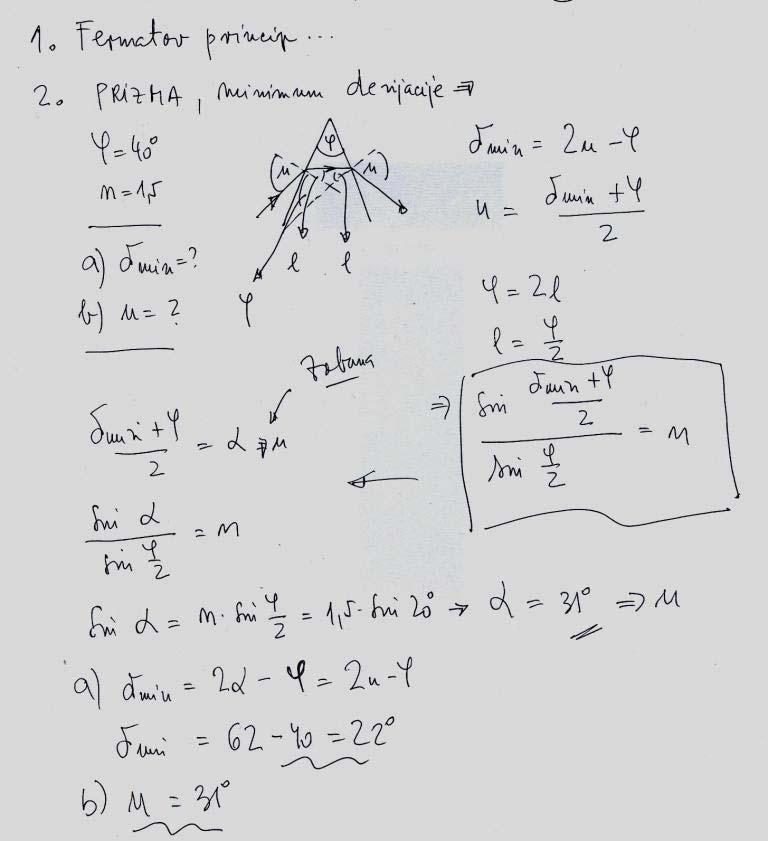 1. Fermatov princip ...
2. PRIZMA, minimum devijacije ⇒
φ = 40°
n = 1,5
a) δmin = ?
b) u = ?
φ
(u
u)
l l
φ
δmin = 2u - φ
u = (δmin + φ)/2
φ = 2l
l = φ/2
⇒ sin (δmin + φ)/2 / sin φ/2 = n
(δmin + φ)/2 = α ⇒ u
sin α / sin φ/2 = n
sin α = n · sin φ/2 = 1,5 · sin 20° → α = 31° ⇒ u
a) δmin = 2α - φ = 2u - φ
δmin = 62 - 40 = 22°
b) u = 31°